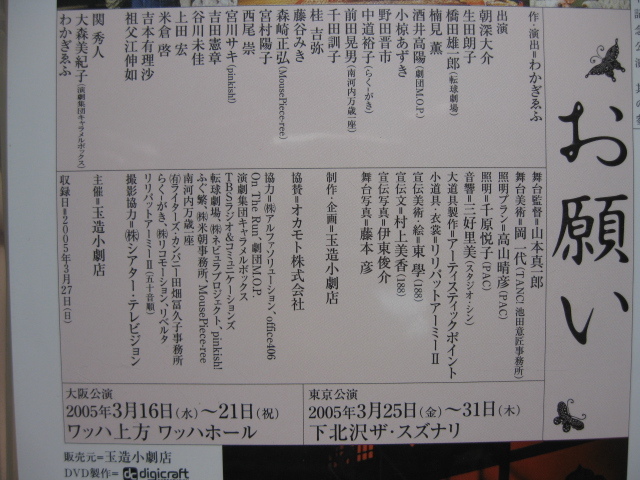 お願い
作・演出＝わかぎゑふ
出演
朝深大介
生田朗子
橋田雄一郎(転球劇場)
楠見 薫
酒井高陽(劇団M.O.P.)
小椋あずき
野田晋市
中道裕子(らく〜がき)
前田晃男(南河内万歳一座)
千田訓子
桂 吉弥
藤谷みき
森崎正弘(MousePiece-ree)
宮村陽子
西尾 崇
宮川サキ(pinkish!)
吉田憲章
谷川未佳
上田 宏
米倉 啓
吉本有理沙
祖父江伸如
関 秀人
大森美紀子(演劇集団キャラメルボックス)
わかぎゑふ
舞台監督＝山本真一郎
舞台美術＝岡 一代(TANC! 池田意匠事務所)
照明プラン＝高山晴彦(PAC)
照明＝千原悦子(PAC)
音響＝三好里美(スタジオ・シン)
大道具製作＝アーティスティックポイント
小道具・衣裳＝リリパットアーミーⅡ
宣伝美術・絵＝東 學(188)
宣伝文＝村上美香(188)
宣伝写真＝伊東俊介
舞台写真＝藤本 彦
制作・企画＝玉造小劇店
協賛＝オカモト株式会社
協力＝㈱アルファソリューション、office406
On The Run、劇団M.O.P.
演劇集団キャラメルボックス
TBSラジオ&コミュニケーションズ
転球劇場、㈱ネビュラプロジェクト、pinkish!
ふぐ繁、㈱米朝事務所、MousePiece-ree
南河内万歳一座
㈲ライターズ・カンパニー田畑冨久子事務所
らく〜がき、㈱リコモーション、リベルタ
リリパットアーミーⅡ(五十音順)
撮影協力＝㈱シアター・テレビジョン
主催＝玉造小劇店
収録日＝2005年3月27日(日)
大阪公演
2005年3月16日(水)〜21日(祝)
ワッハ上方 ワッハホール
東京公演
2005年3月25日(金)〜31日(木)
下北沢ザ・スズナリ
販売元＝玉造小劇店
DVD製作＝digicraft